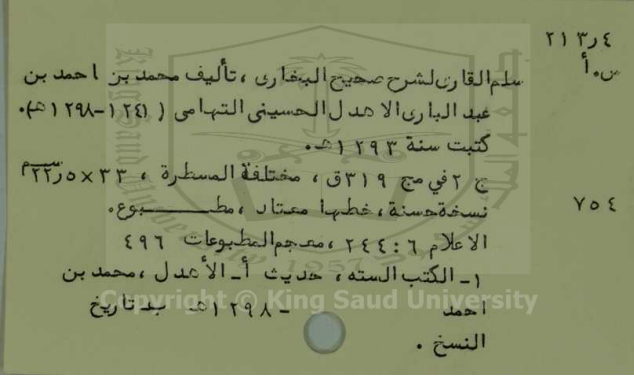 ٢١٣٫٤
س٠أ
سلم القارئ لشرح صحيح البخارى ، تأليف محمد بن احمد بن
عبد البارى الاهدل الحسينى التهامى ( ١٢٤١-١٢٩٨هـ)٠
كتبت سنة ١٢٩٣هـ٠
ج ٢ في مج ٣١٩ق ، مختلفة المسطرة ، ٣٣×٢٢٫٥سم
٧٥٤
نسخة حسنة ، خطها معتاد ، مطبوع٠
الاعلام ٦ : ٢٤٤ ، معجم المطبوعات ٤٩٦
١- الكتب السته ، حديث أ- الأهدل ، محمد بن
احمد -١٢٩٨هـ ب- تاريخ
النسخ ٠
Copyright © King Saud University
King Saud University
1957